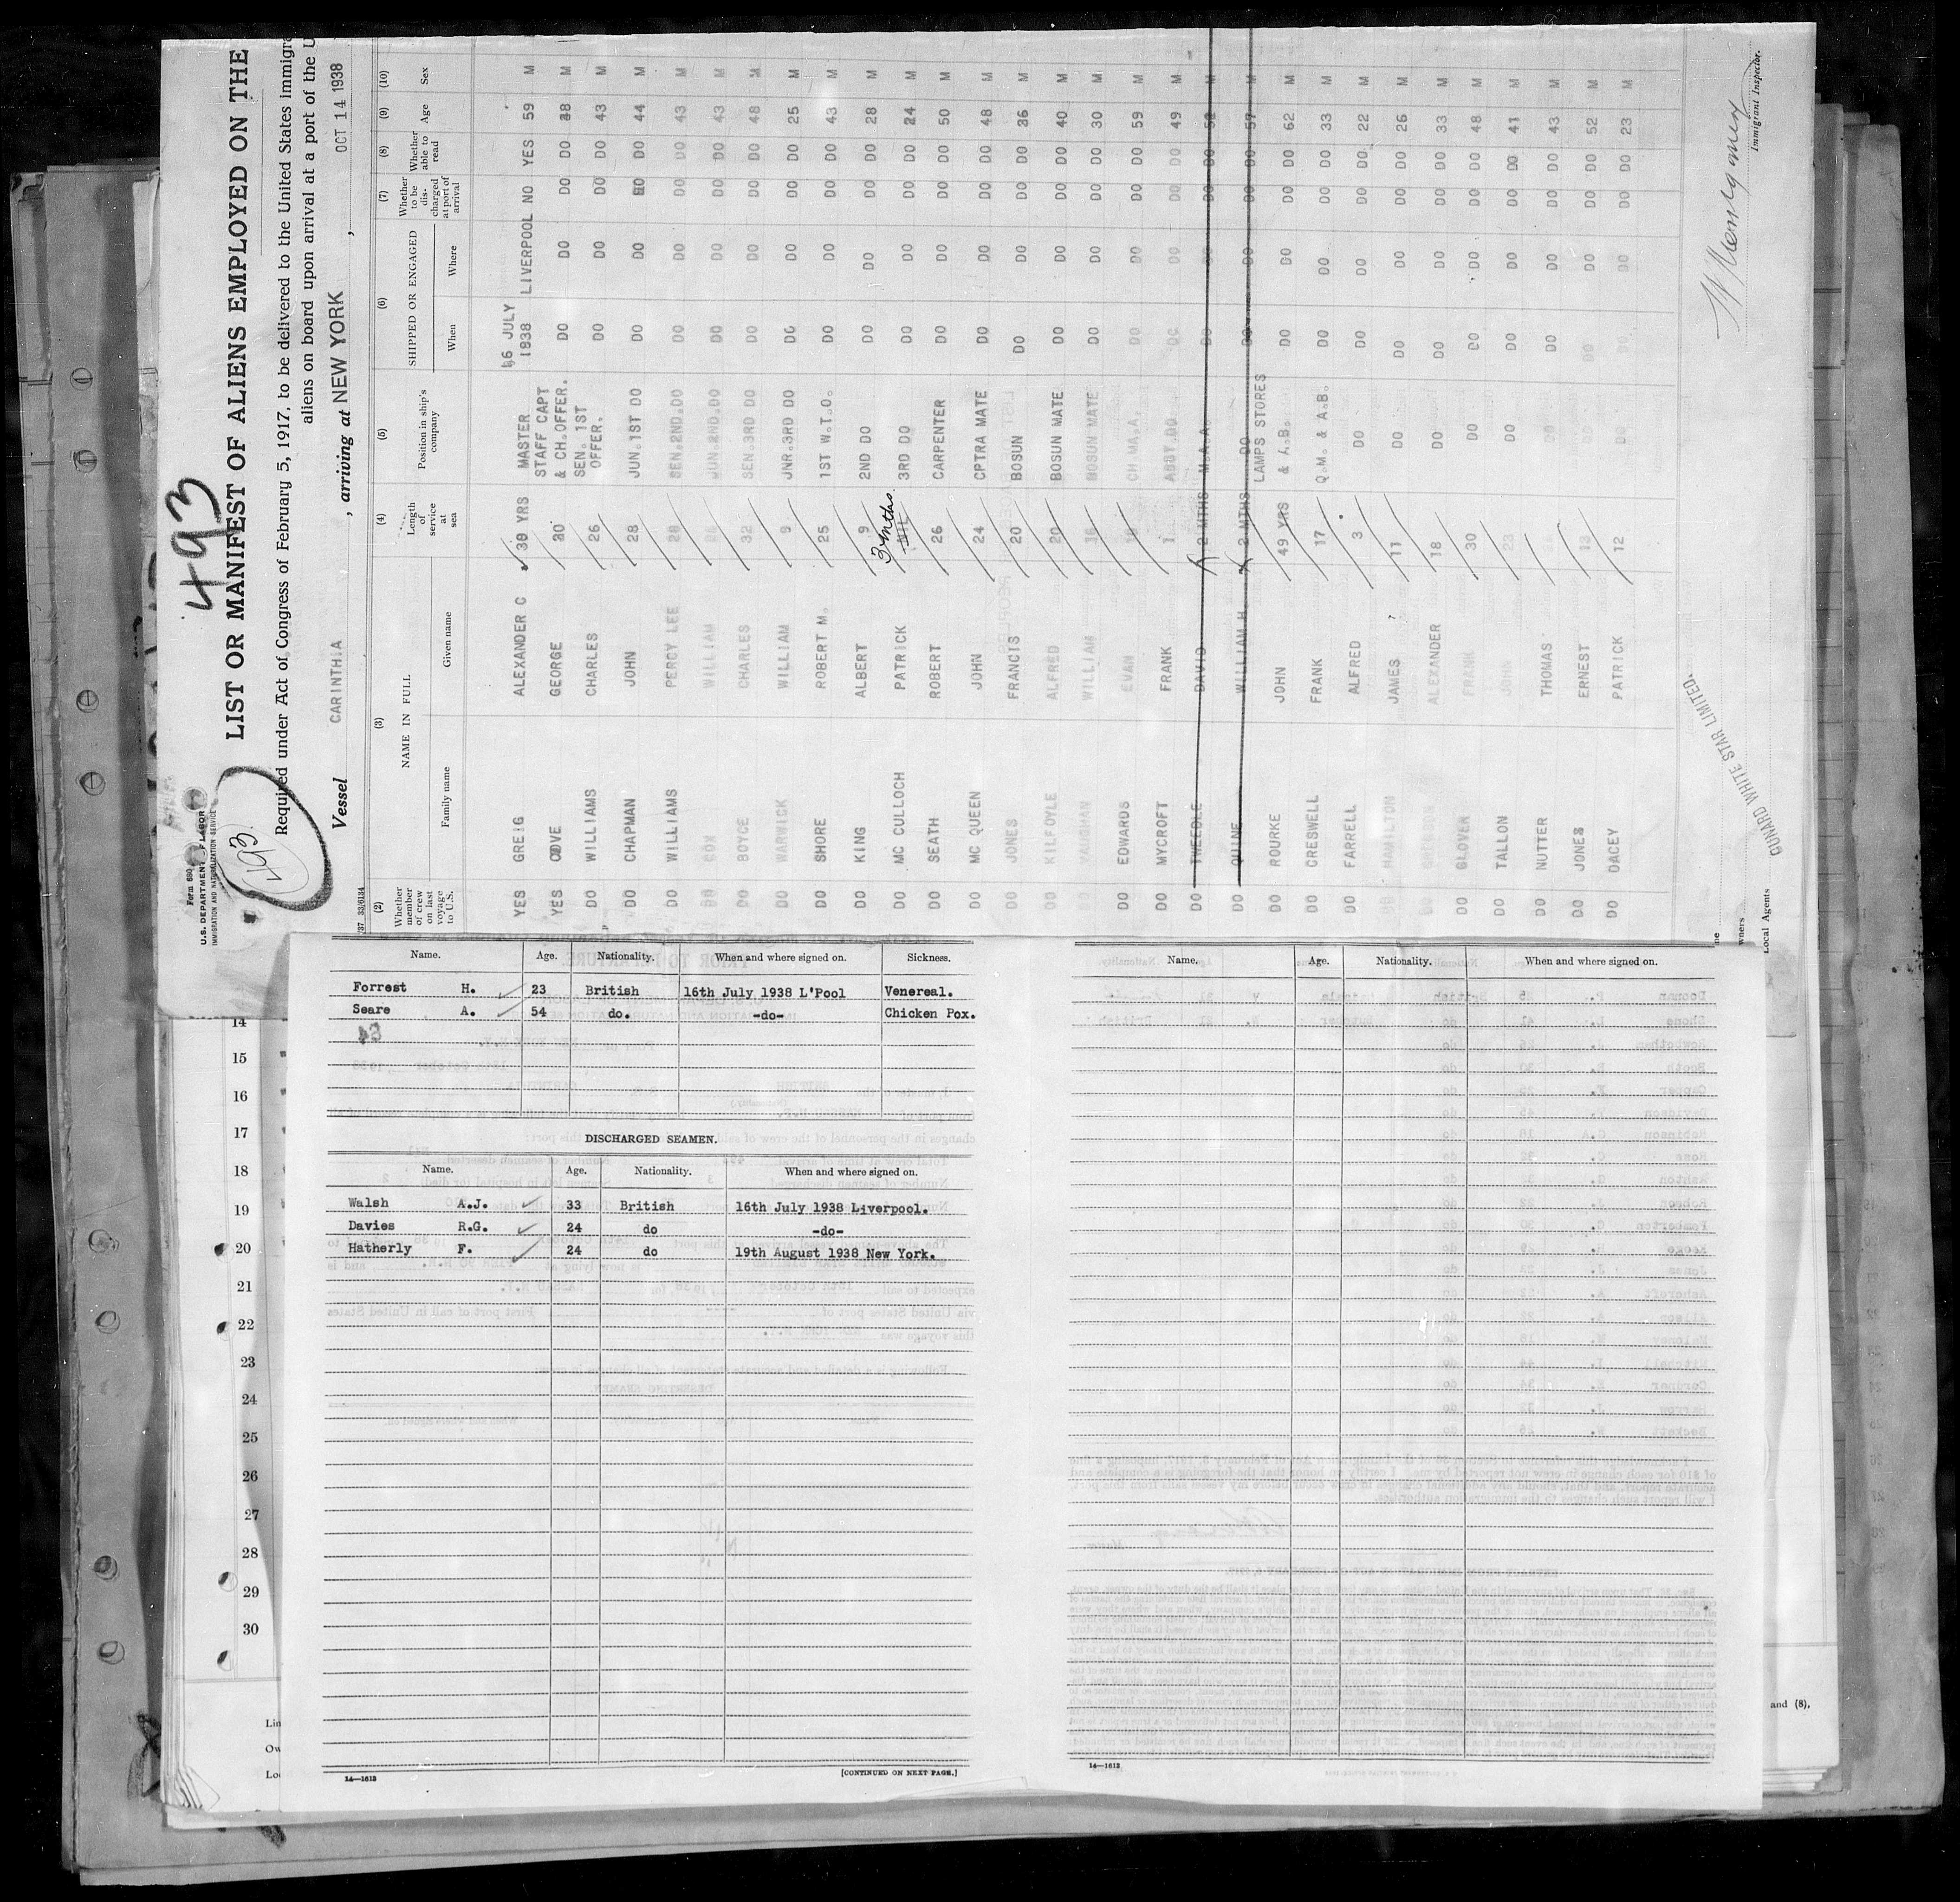 493
LIST OR MANIFEST OF ALIENS EMPLOYED ON THE
Form 680
U.S. DEPARTMENT OF LABOR
IMMIGRATION AND NATURALIZATION SERVICE
493
Required under Act of Congress of February 5, 1917, to be delivered to the United States immigra
aliens on board upon arrival at a port of the U
Vessel CARINTHIA , arriving at NEW YORK , OCT 14 1938
(2) (3) (4) (5) (6) (7) (8) (9) (10)
Whether member of crew on last voyage to U.S. NAME IN FULL Family name Given name Length of service at sea Position in ship's company SHIPPED OR ENGAGED When Where Whether to be discharged at port of arrival Whether able to read Age Sex
YES GREIG ALEXANDER C 30 YRS MASTER 16 JULY 1938 LIVERPOOL NO YES 59 M
YES GEORGE STAFF CAPT & CH.OFFER. DO DO DO DO 38 M
DO WILLIAMS CHARLES 26 SEN. 1ST OFFER. DO DO DO DO 43 M
DO CHAPMAN JOHN 28 JUN.1ST DO DO DO DO DO 44 M
DO WILLIAMS PERCY LEE 28 SEN.2ND.DO DO DO DO DO 43 M
DO COX WILLIAM JUN.2ND.DO DO DO DO DO 43 M
DO BOYCE CHARLES 32 SEN.3RD DO DO DO DO DO 48 M
DO WARWICK WILLIAM 9 JNR.3RD DO DO DO DO DO 25 M
DO SHORE ROBERT M. 25 1ST W.T.O. DO DO DO DO 43 M
DO KING ALBERT 9 2ND DO DO DO DO DO 28 M
DO MC CULLOCH PATRICK NIL 3 mths 3RD DO DO DO DO DO 24 M
DO SEATH ROBERT 26 CARPENTER DO DO DO DO 50 M
DO MC QUEEN JOHN 24 CPTRA MATE DO DO DO DO 48 M
DO JONES FRANCIS 20 BOSUN DO DO DO DO 36 M
DO KILFOYLE ALFRED 20 BOSUN MATE DO DO DO DO 40 M
VAUGHAN WILLIAM 16 BOSUN MATE DO DO DO DO 30 M
DO EDWARDS EVAN CH M.A. DO DO DO DO 59 M
DO MYCROFT FRANK 1 ASST.DO DO DO DO DO 49 M
DO TWEEDLE DAVID 2 MTHS M.A.A. DO DO DO DO 52 M
DO QUINE WILLIAM H. 2 MTHS DO DO DO DO DO 57 M
DO ROURKE JOHN 49 YRS LAMPS STORES & A.B. DO DO DO DO 62 M
DO CRESWELL FRANK 17 Q.M. & A.B. DO DO DO DO 33 M
DO FARRELL ALFRED 3 DO DO DO DO DO 22 M
DO HAMILTON JAMES 11 DO DO DO DO DO 26 M
DO ALEXANDER 18 DO DO DO DO DO 33 M
DO GLOVER FRANK 30 DO DO DO DO DO 48 M
DO TALLON JOHN 23 DO DO DO DO DO 41 M
DO NUTTER THOMAS DO DO DO DO DO 43 M
DO JONES ERNEST 13 DO DO DO DO DO 52 M
DO DACEY PATRICK 12 DO DO DO DO DO 23 M
CUNARD WHITE STAR LIMITED.
W Montgomery
Immigrant Inspector.
wners
Local Agents
Name. Age. Nationality. When and where signed on. Sickness.
Forrest H. 23 British 16th July 1938 L'Pool Venereal.
Seare A. 54 do. -do- Chicken Pox.
DISCHARGED SEAMEN.
Name. Age. Nationality. When and where signed on.
Walsh A.J. 33 British 16th July 1938 Liverpool.
Davies R.G. 24 do -do-
Hatherly F. 24 do 19th August 1938 New York.
14—1613
[CONTINUED ON NEXT PAGE.]
Name. Age. Nationality. When and where signed on.
14—1613
14
15
16
17
18
19
20
21
22
23
24
25
26
27
28
29
30
Lin
Ow
Lo
and (8),